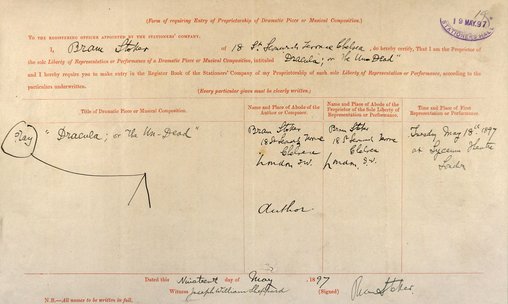 (Form of requiring Entry of Proprietorship of Dramatic Piece or Musical Composition.)
19 MAY.97
STATIONERS' HALL
TO THE REGISTERING OFFICER APPOINTED BY THE STATIONERS' COMPANY:
I, Bram Stoker of 18 St. Leonards Terrace Chelsea, do hereby certify, That I am the Proprietor of
the sole Liberty of Representation or Performance of a Dramatic Piece or Musical Composition, intituled "Dracula; or The Un-Dead"
and I hereby require you to make entry in the Register Book of the Stationers' Company of my Proprietorship of such sole Liberty of Representation or Performance, according to the
particulars underwritten.
(Every particular given must be clearly written.)
Title of Dramatic Piece or Musical Composition.
Play
"Dracula; or The Un-Dead"
Name and Place of Abode of the
Author or Composer.
Bram Stoker
18 St Leonards Terrace
Chelsea
London S.W.
Author.
Name and Place of Abode of the
Proprietor of the Sole Liberty of
Representation or Performance.
Bram Stoker
18 St Leonards Terrace
Chelsea
London S.W.
Time and Place of First
Representation or Performance.
Tuesday May 18th 1897
at Lyceum Theatre
London
Dated this Nineteenth day of May 1897
Witness Joseph William
(Signed) Bram Stoker
N.B.—All names to be written in full.